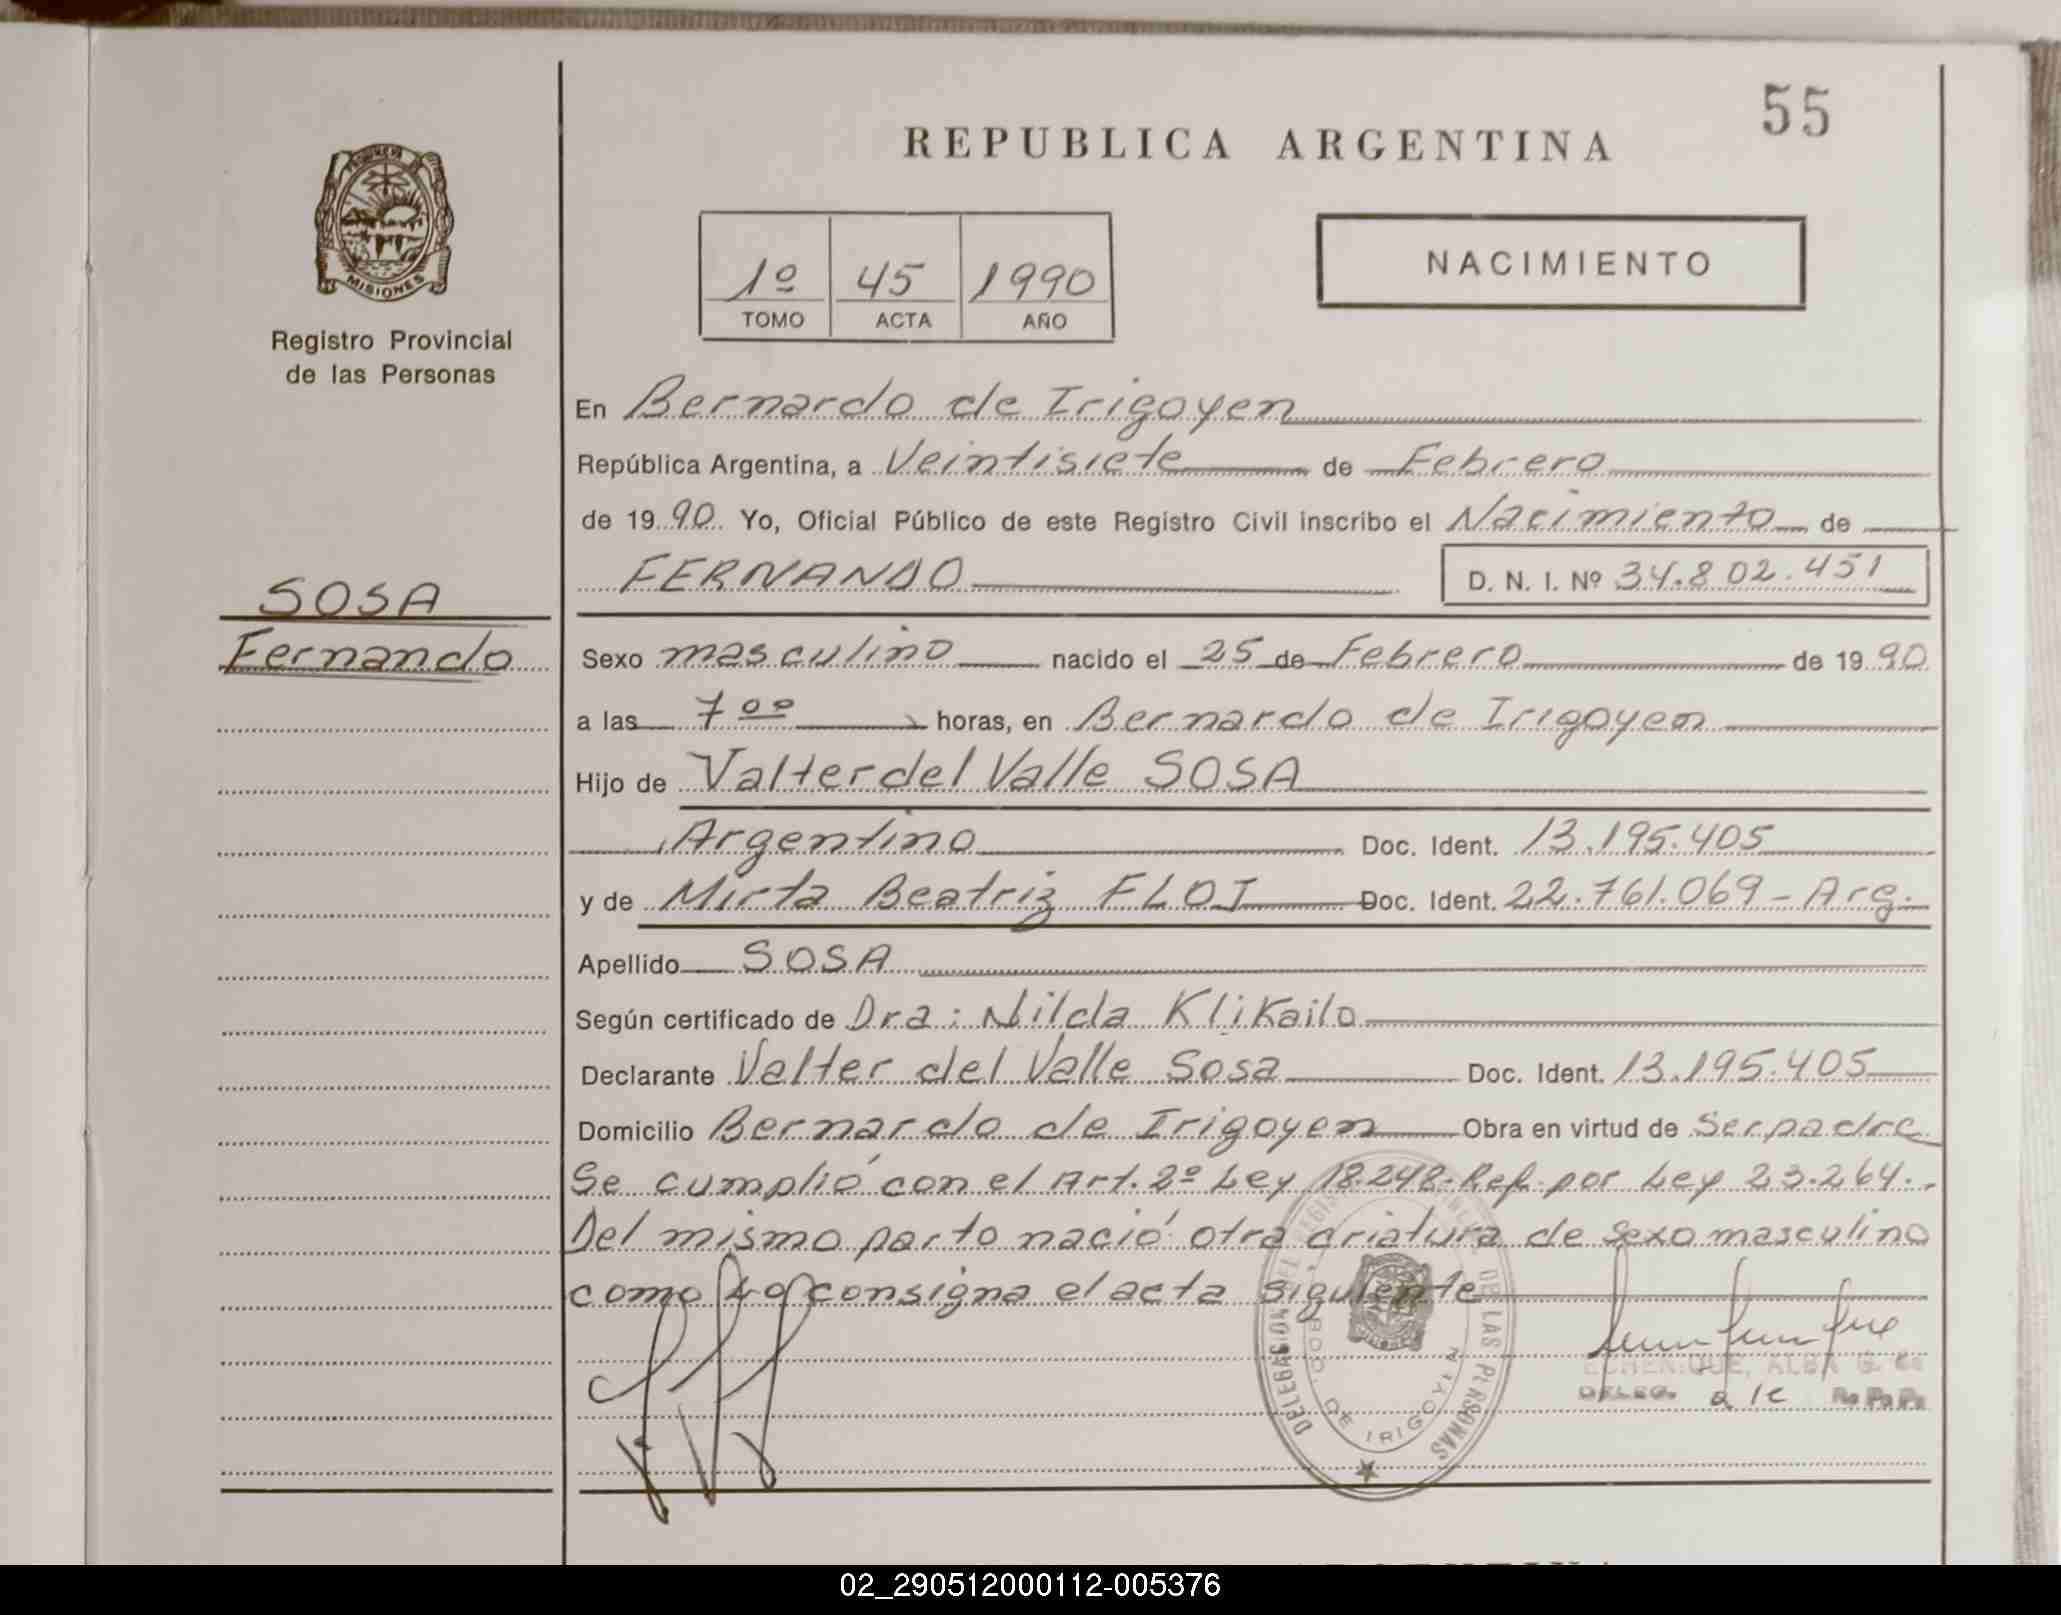 55
REPUBLICA ARGENTINA
NACIMIENTO
1º 45 1990
TOMO ACTA AÑO
MISIONES
Registro Provincial
de las Personas
En Bernardo de Irigoyen
República Argentina, a Veintisiete de Febrero
de 1990 Yo, Oficial Público de este Registro Civil inscribo el Nacimiento de
FERNANDO D. N. I. Nº 34.802.451
SOSA
Fernando
Sexo masculino nacido el 25 de Febrero de 1990
a las 7 00 horas, en Bernardo de Irigoyen
Hijo de Valter del Valle SOSA
Argentino Doc. Ident. 13.195.405
y de Mirta Beatriz FLOT Doc. Ident. 22.761.069 - Arg.
Apellido SOSA
Según certificado de Dra: Nilda Klikailo
Declarante Valter del Valle Sosa Doc. Ident. 13.195.405
Domicilio Bernardo de Irigoyen Obra en virtud de Ser padre
Se cumplió con el Art. 2º Ley 18.248- Ref. por Ley 23.264.
Del mismo parto nació otra criatura de sexo masculino
como lo consigna el acta siguiente
DELEGACION DEL REGISTRO DE LAS PERSONAS
DE IRIGOYEN
ECHENIQUE, ALBA G. de
DELEG. a/c R.P.P.
02_290512000112-005376